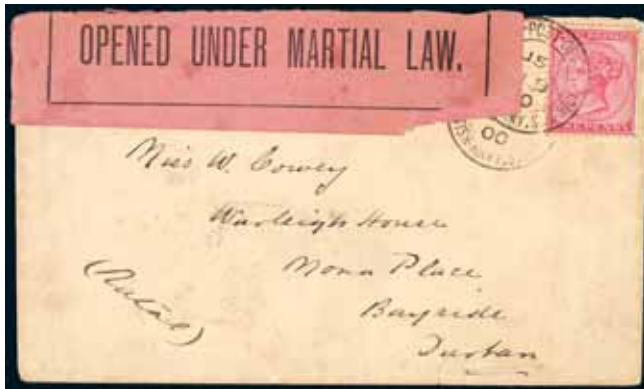 OPENED UNDER MARTIAL LAW.
00
Miss W. Cowey
Warleigh House
Mona Place
Bayside
Durban
(Natal)